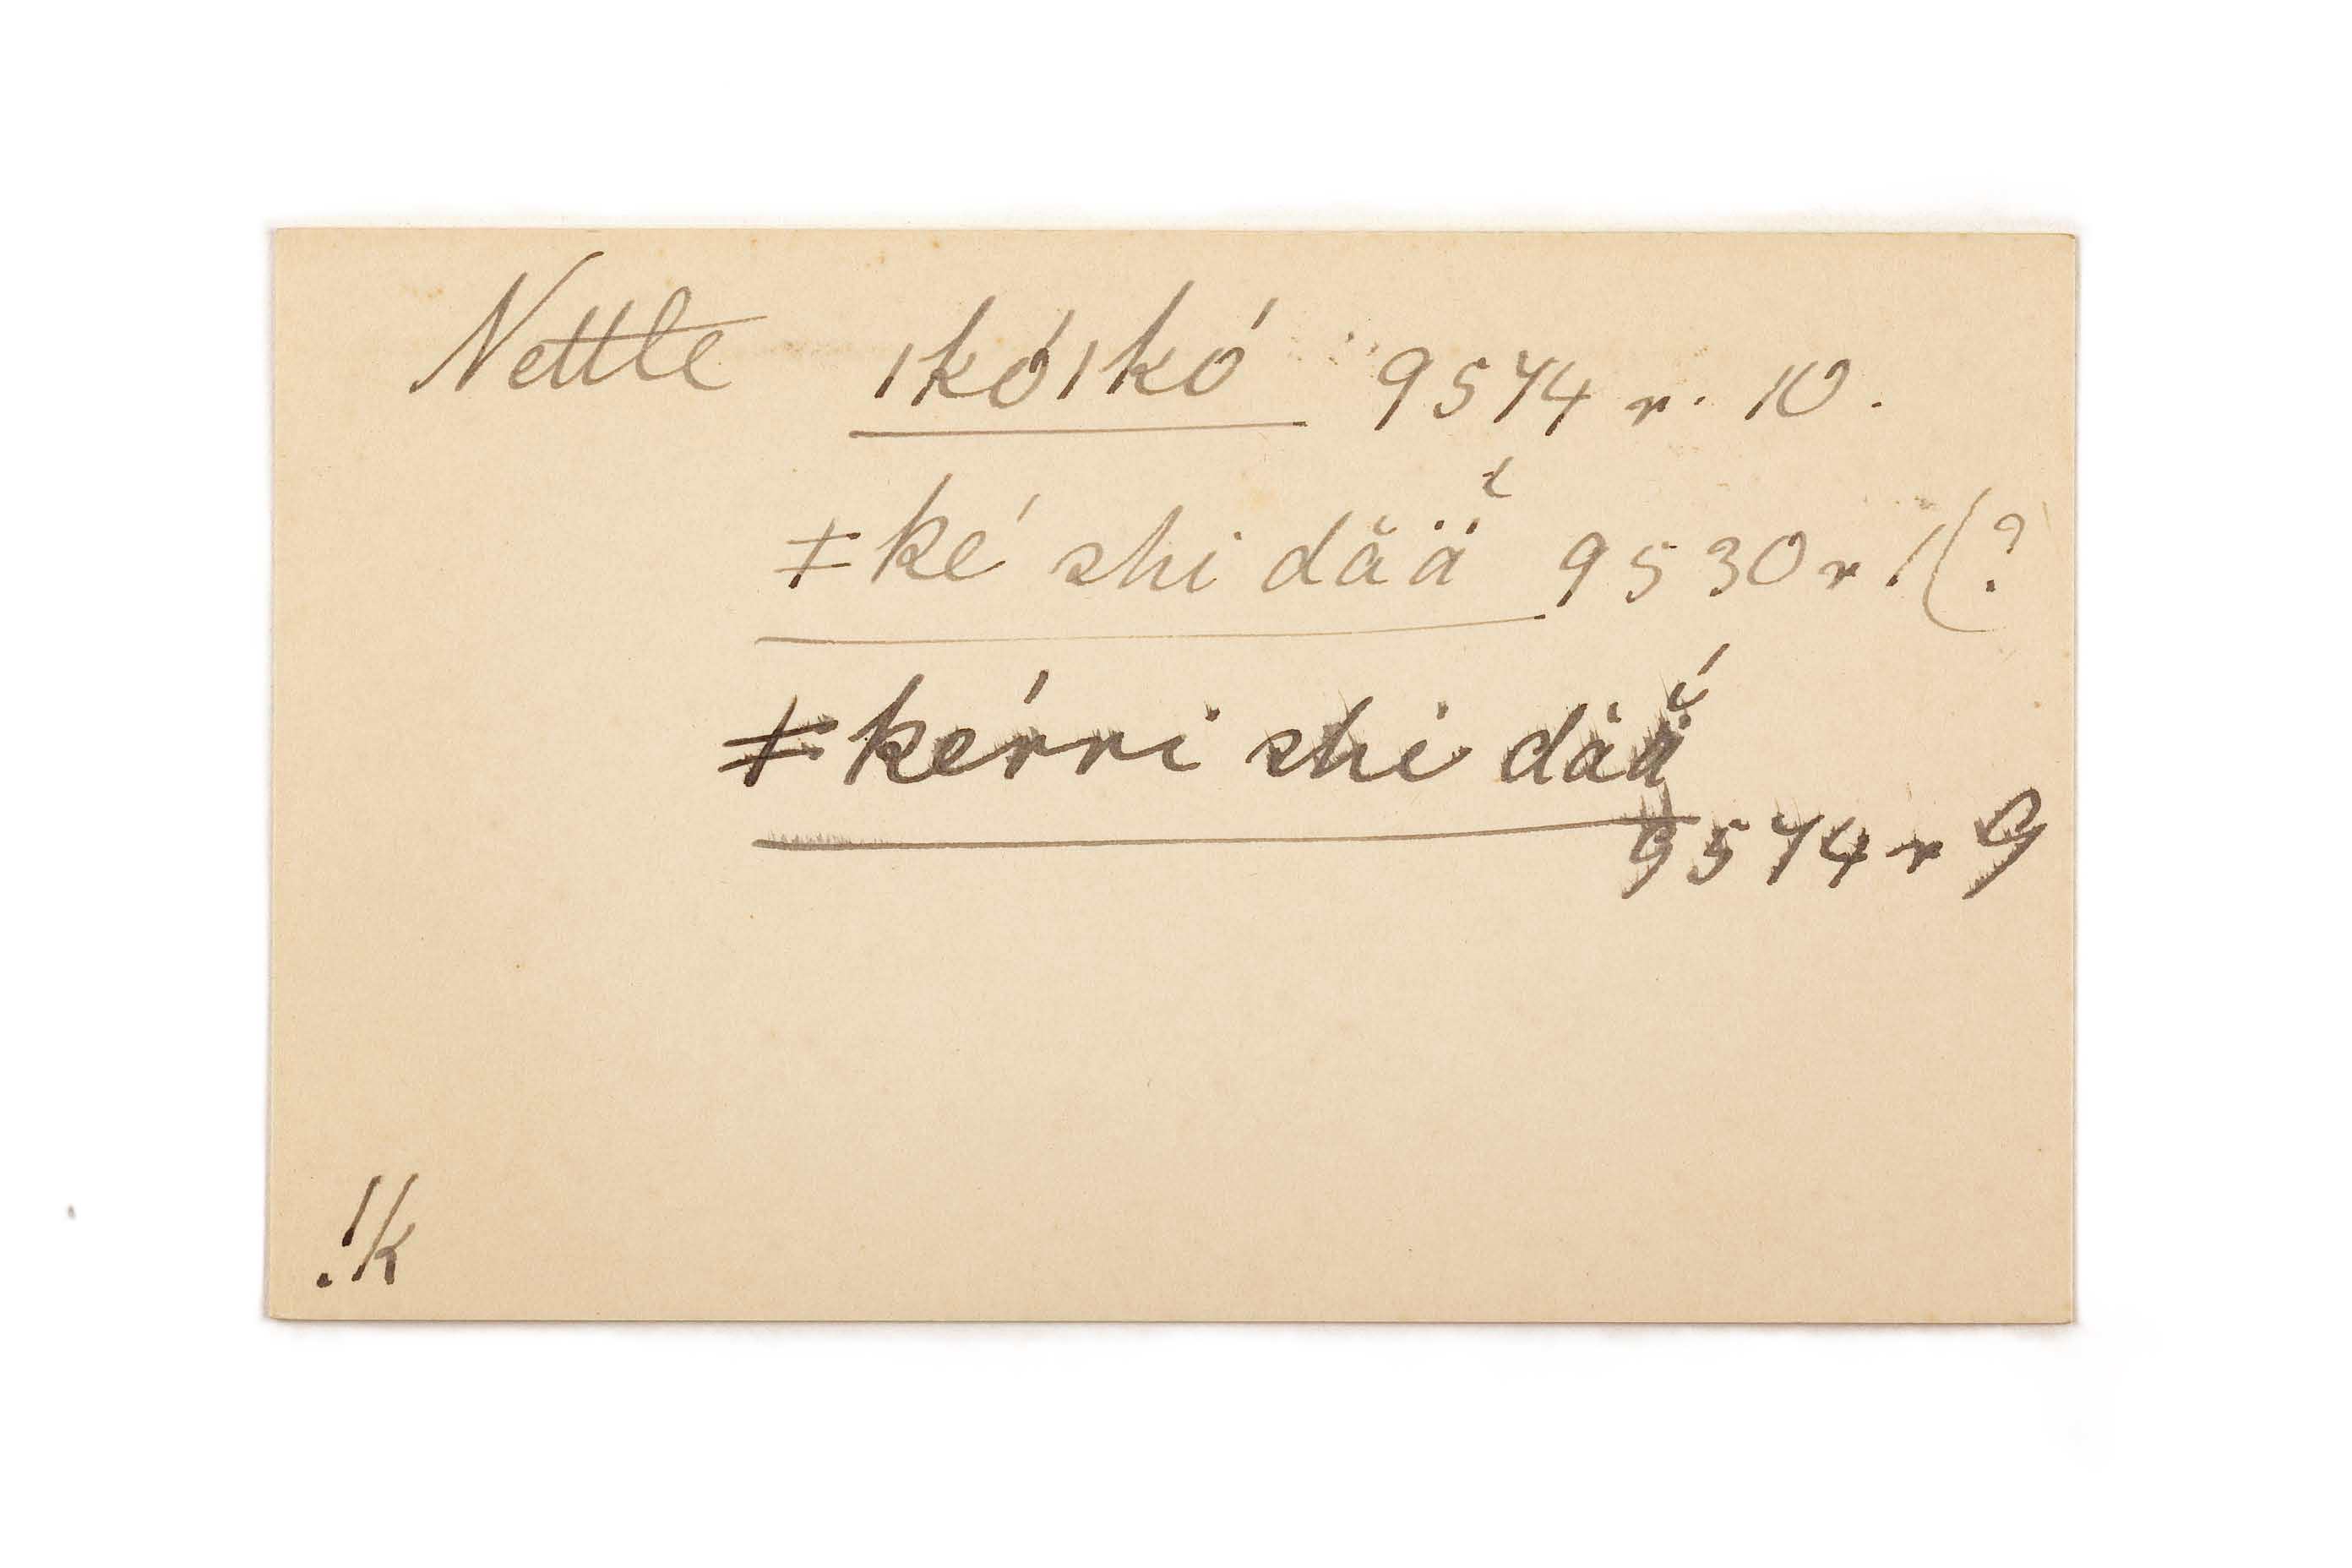 Nettle ǀkóǀkó 9574 r. 10.
ǂké shi dăä̆ 9530 r 1 (?
ǂkérri shi dȧä̆́
9574 r 9
!k